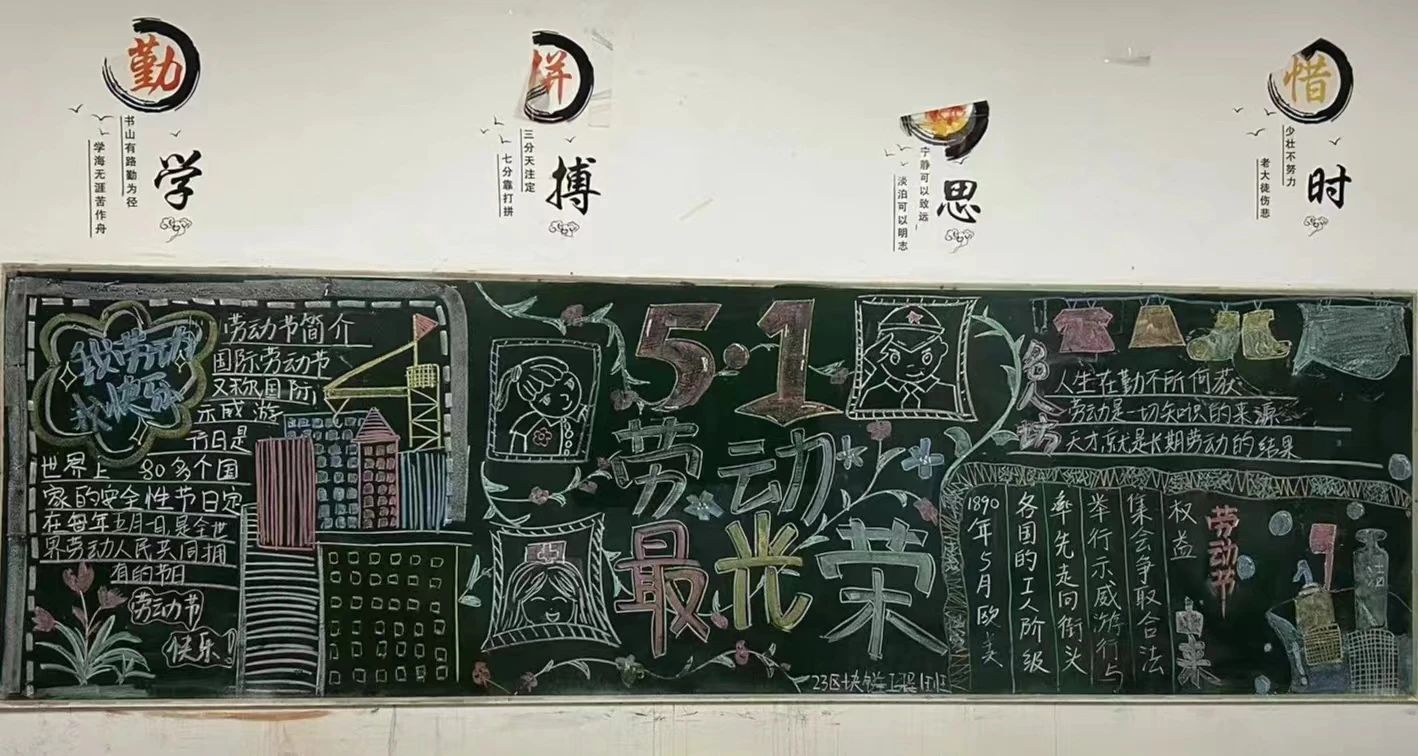 勤学
书山有路勤为径
学海无涯苦作舟
拼搏
三分天注定
七分靠打拼
思
宁静可以致远
淡泊可以明志
惜时
少壮不努力
老大徒伤悲
我劳动
我快乐
劳动节简介
国际劳动节
又称国际
示威游
节日是
世界上 80多个国
家的安全性节日定
在每年五月一日是全世
界劳动人民共同拥
有的节日
劳动节
快乐!
5·1
劳动
最光荣
名人坊
人生在勤不所何获
劳动是一切知识的来源
天才就是长期劳动的结果
1890年5月欧美
各国的工人阶级
率先走向街头
举行示威游行与
集会争取合法
权益
劳动节
由来
洁